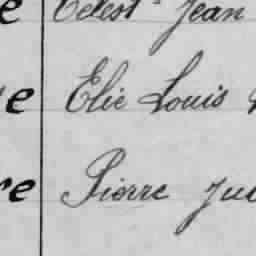 e Célest Jean
e Elie Louis
re Pierre Jul